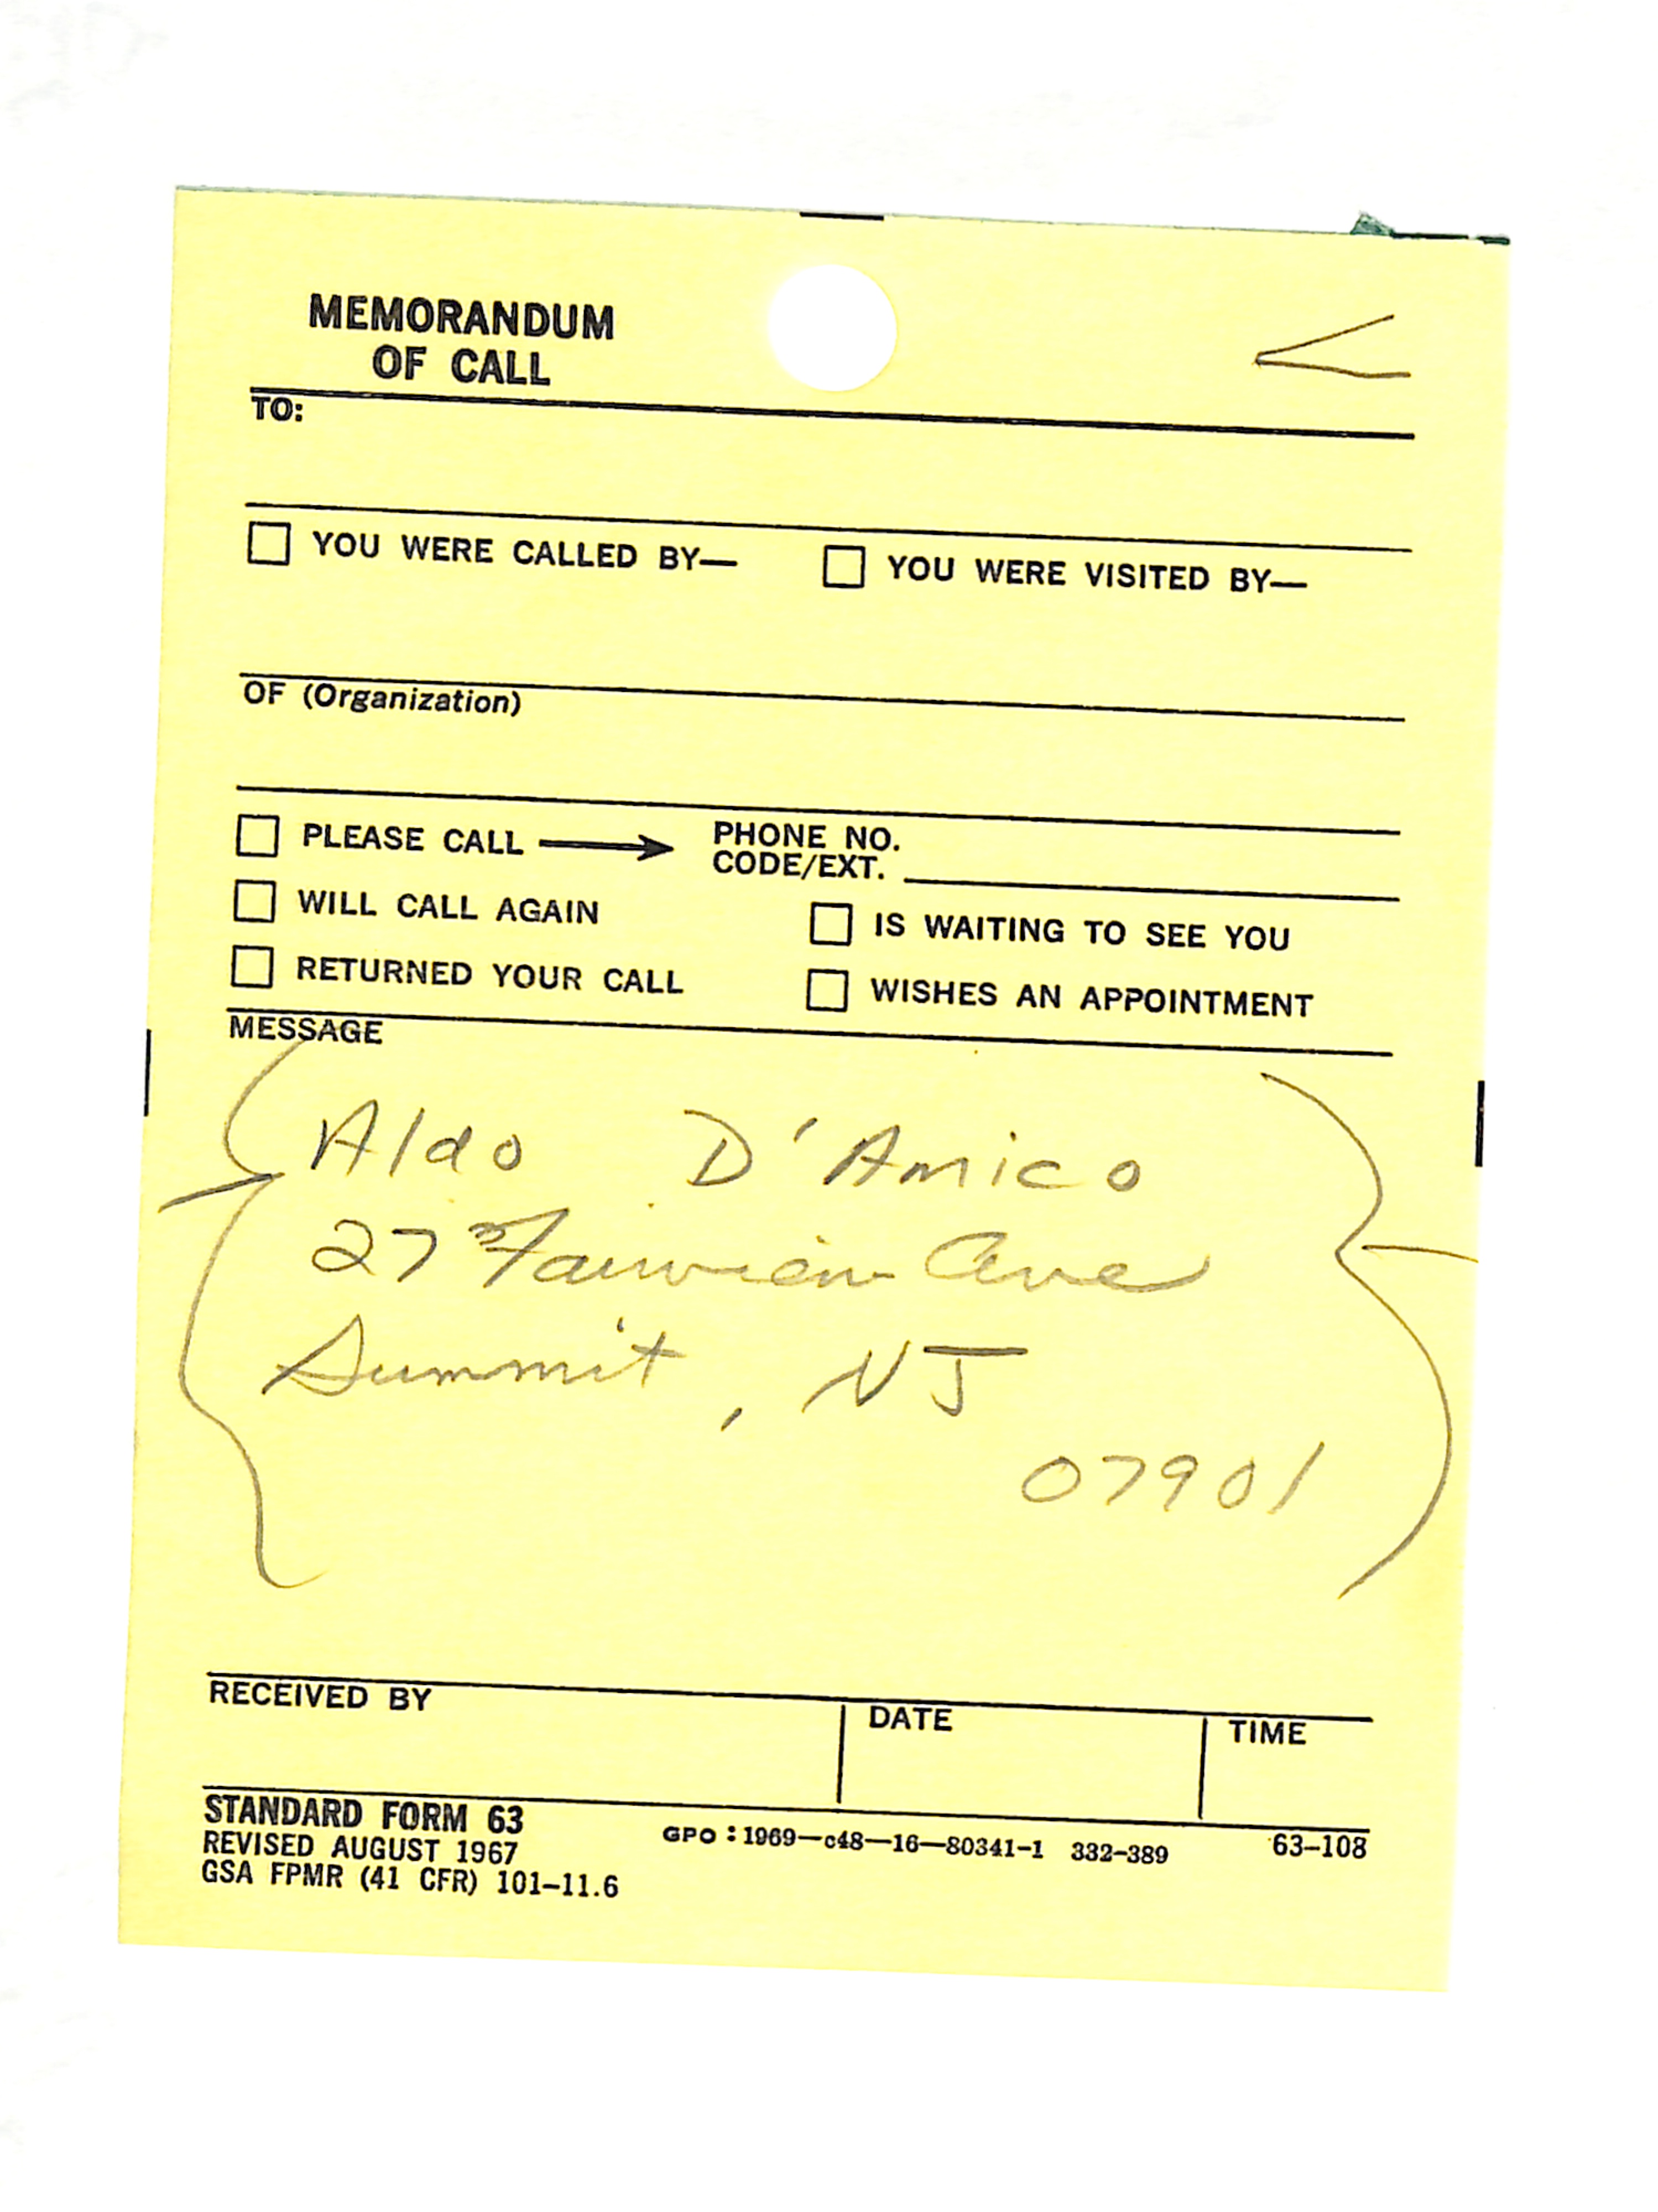 MEMORANDUM
OF CALL
TO:
YOU WERE CALLED BY— YOU WERE VISITED BY—
OF (Organization)
PLEASE CALL → PHONE NO.
CODE/EXT.
WILL CALL AGAIN IS WAITING TO SEE YOU
RETURNED YOUR CALL WISHES AN APPOINTMENT
MESSAGE
Aldo D'Amico
27 Fairview Ave
Summit, NJ
07901
RECEIVED BY DATE TIME
STANDARD FORM 63
REVISED AUGUST 1967
GSA FPMR (41 CFR) 101–11.6
GPO : 1969—c48—16—80341-1 332-389 63–108